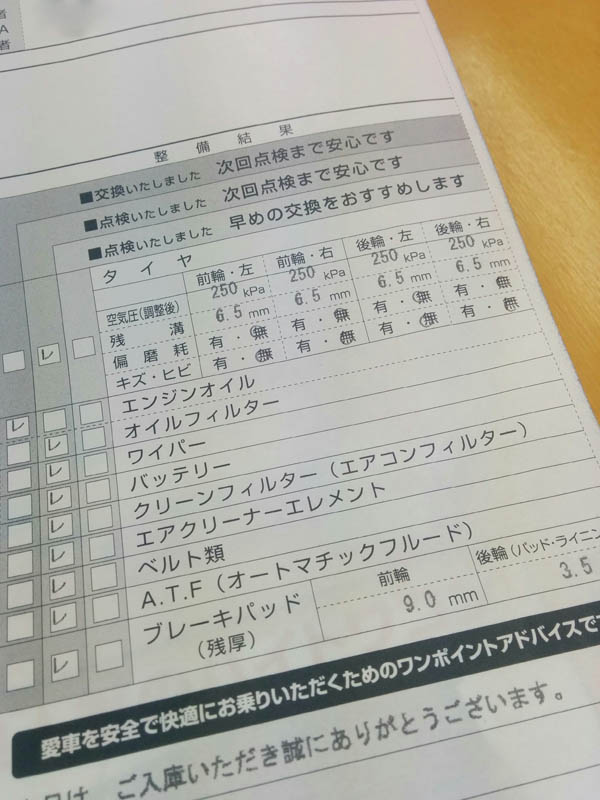 者
A
者
整備結果
■交換いたしました 次回点検まで安心です
■点検いたしました 次回点検まで安心です
■点検いたしました 早めの交換をおすすめします
タイヤ 前輪・左 前輪・右 後輪・左 後輪・右
空気圧(調整後) 250 kPa 250 kPa 250 kPa 250 kPa
残溝 6.5 mm 6.5 mm 6.5 mm 6.5 mm
偏磨耗 有・無 有・無 有・無 有・無
キズ・ヒビ 有・無 有・無 有・無 有・無
レ
エンジンオイル
レ
オイルフィルター
レ
ワイパー
レ
バッテリー
レ
クリーンフィルター(エアコンフィルター)
レ
エアクリーナーエレメント
レ
ベルト類
レ
A.T.F(オートマチックフルード)
レ
ブレーキパッド(残厚) 前輪 後輪(パッド・ライニン
9.0 mm 3.5
レ
愛車を安全で快適にお乗りいただくためのワンポイントアドバイスで
は、ご入庫いただき誠にありがとうございます。